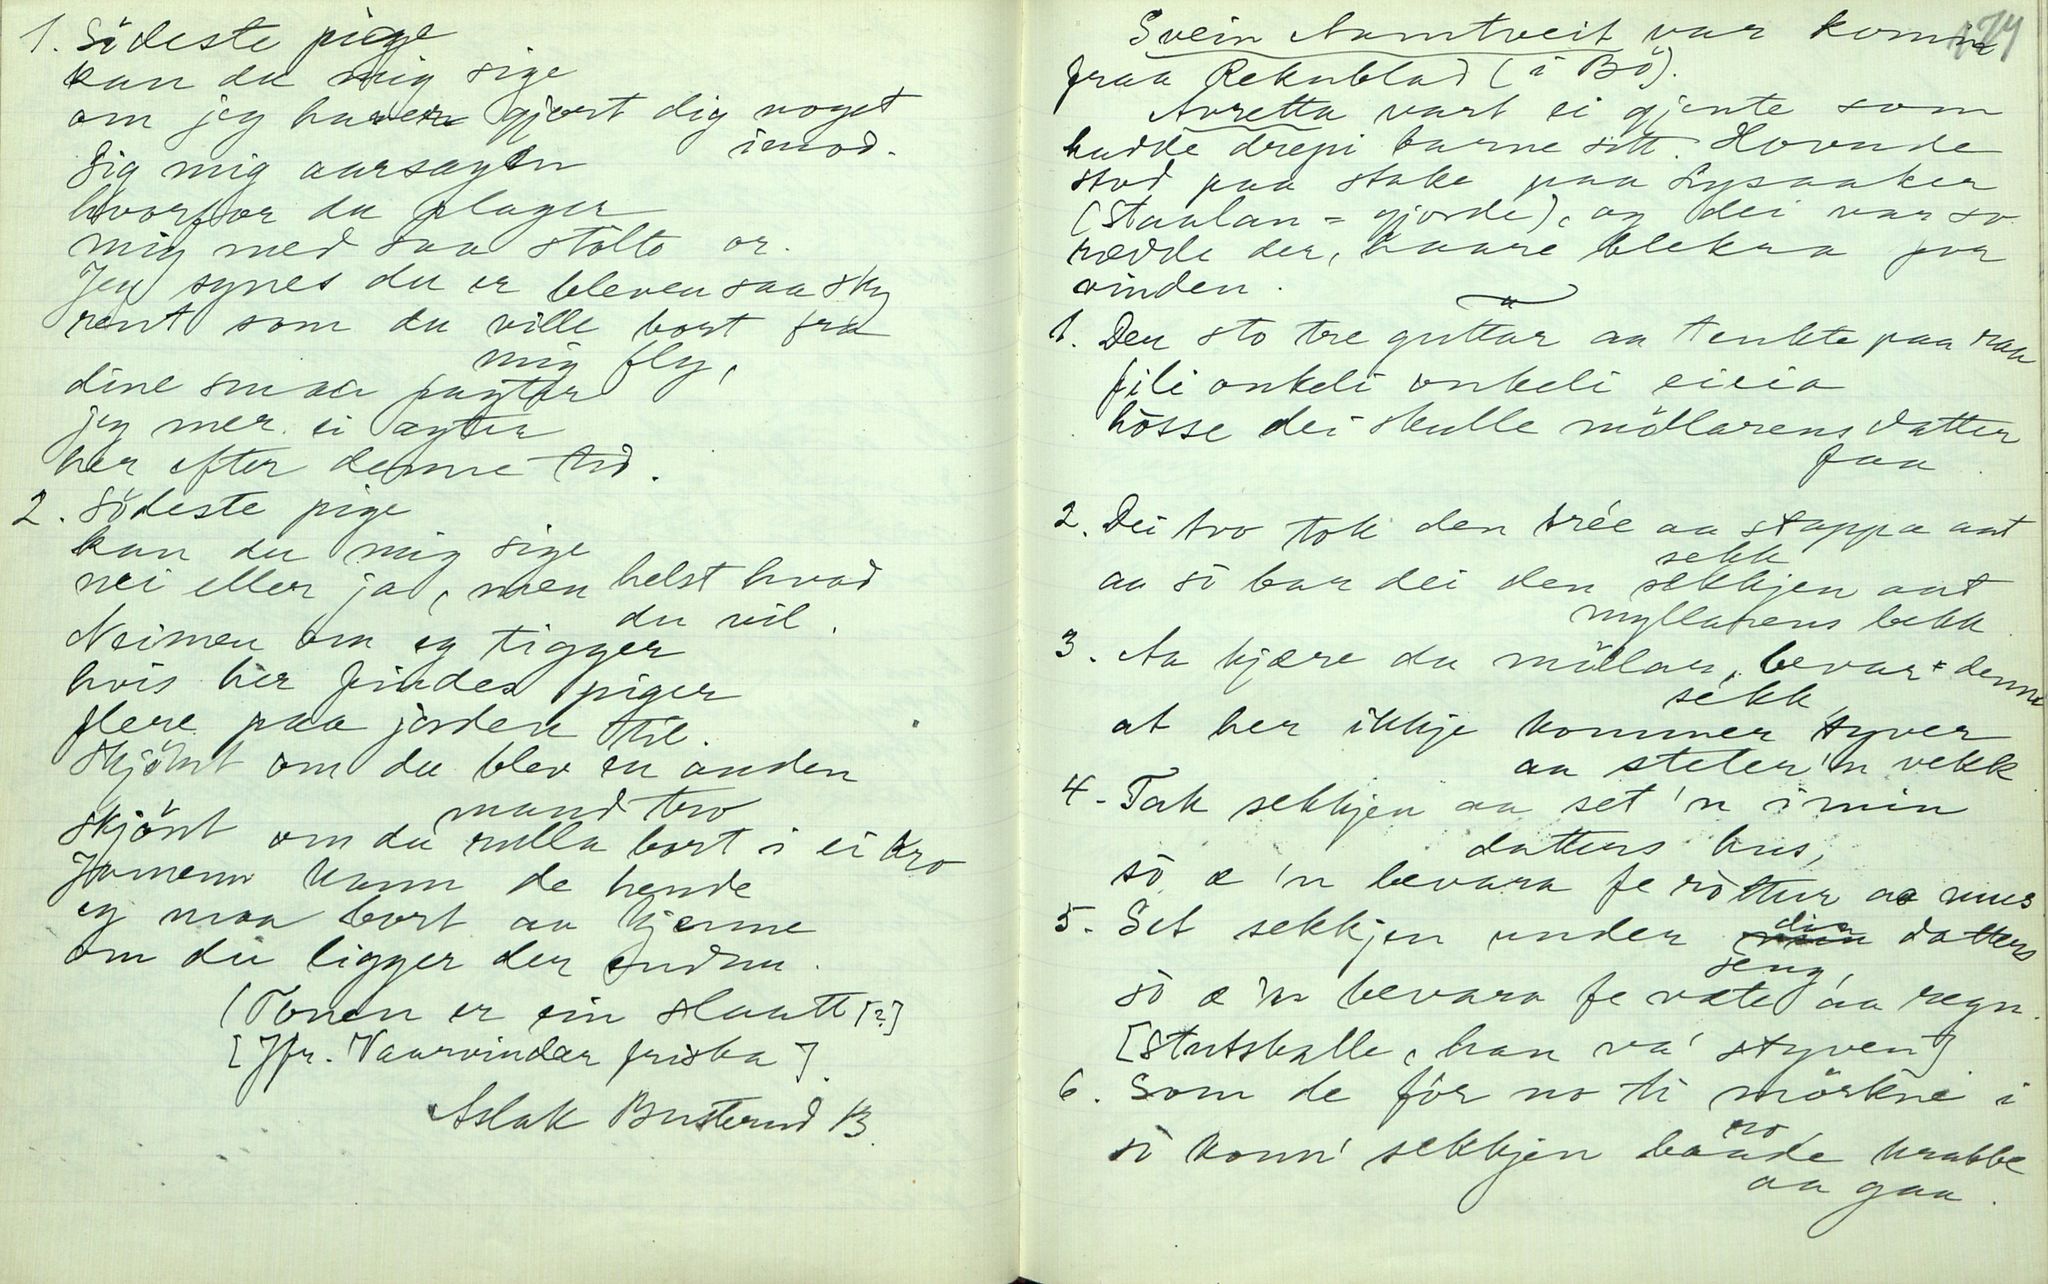 1. Södeste pige
kan du mig sige
om jeg haver gjort dig noget
imod.
Sig mig aarsagen
hvorfor du plager
mig med saa stolte or.
Jeg synes du er bleven saa sky
rent som du ville bort fra
mig fly,
dine smaa fagter
jeg mer ei agter
her efter denne tid.
2. Södeste pige
kan du mig sige
nei eller ja, men helst hvad
du vil.
Neimen om eg tigger
hvis her findes piger
flere paa jorden til.
Skjönt om du blev en anden
mand tro
skjönt om du rulla bort i ei kro
Jamenn kann de hende
eg maa bort aa kjenne
om du ligger der endnu.
(Tonen er ein slaatt [?]
[Jfr. Vaarvindar friska].
Aslak Busterud B.
174
Svein Aamtveit var komin
fraa Rekublad (i Bö).
Avretta vart ei gjente som
hadde drepi barne sitt. Hovude
stod paa stake paa Lysaaker
(Staulan = gjorde), og dei var so
rædde der, haare blekra for
vinden.
1. Der sto tre guttar aa tenkte paa raa
fili onkeli onkeli eieia
hòsse dei skulle möllarens datter
faa.
2. Dei tvo tok den trée aa stappa aat
sekk
aa sò bar dei den sekkjen aat
myllarens bekk
3. Aa kjære du möllar, bevar denne
sekk
at her ikkje kommer tyver
aa steler'n vekk
4. Tak sekkjen aa set'n i min
datters hus,
sò æ'n bevara fe ròttur aa mus
5. Set sekkjen under min din datters
seng,
sò æ'n bevara fe væte aa regn.
[Stutskalle, han va' styven]
6. Som de fòr no ti mörkne i
ro
sò konn' sekkjen baade krabbe
aa gaa.